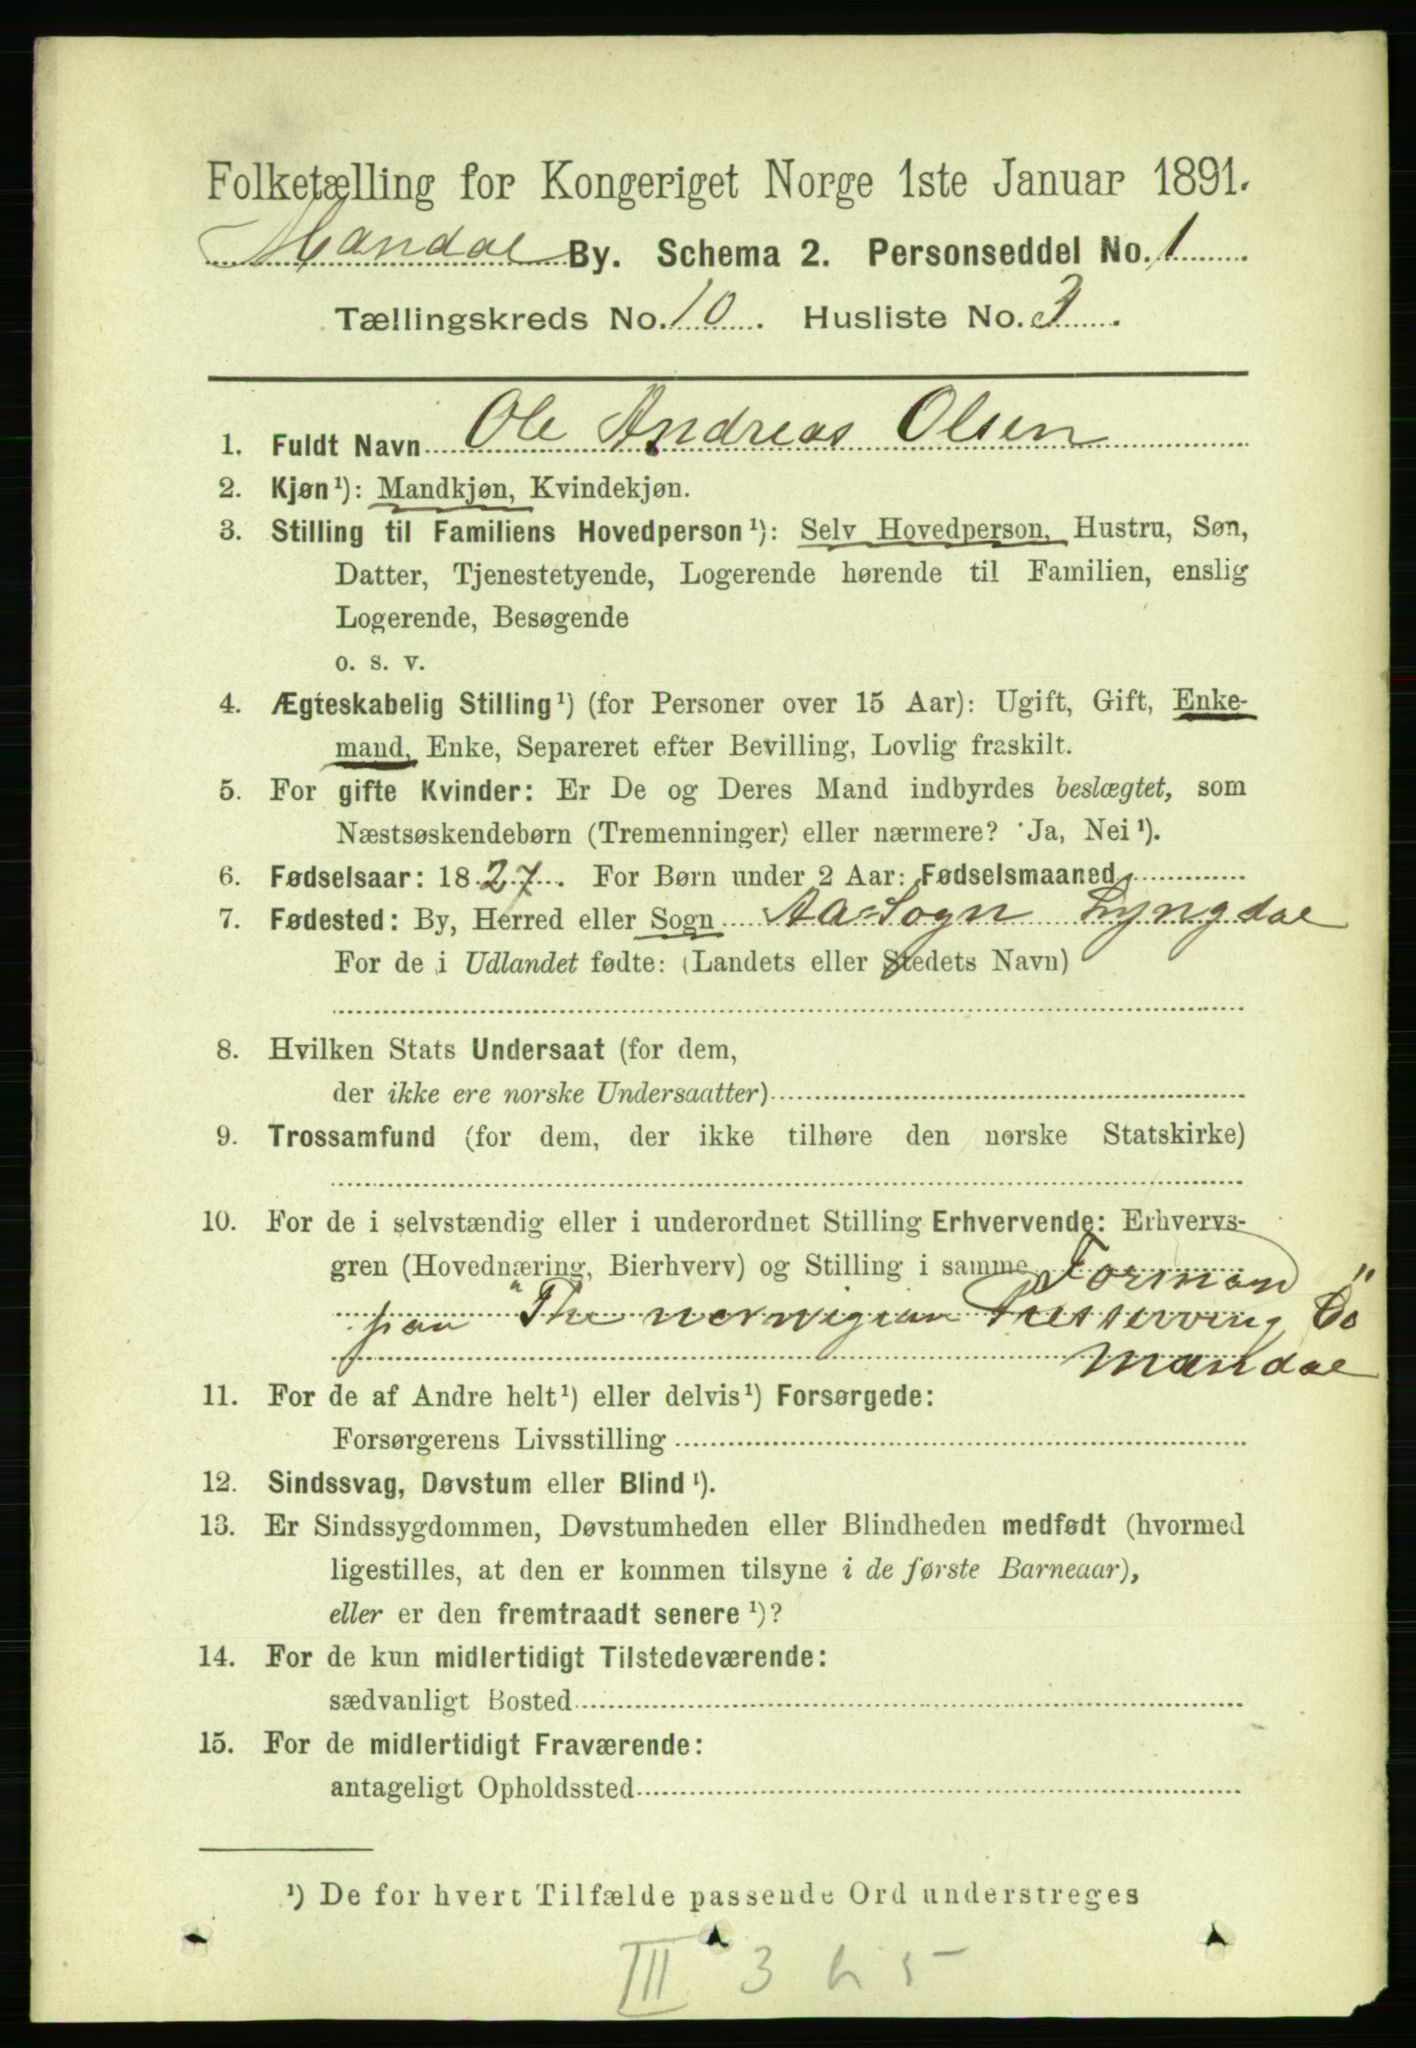 Folketælling for Kongeriget Norge 1ste Januar 1891.
Mandal By. Schema 2. Personseddel No. 1
Tællingskreds No. 10. Husliste No. 3.
1. Fuldt Navn Ole Andreas Olsen
2. Kjøn¹): Mandkjøn, Kvindekjøn.
3. Stilling til Familiens Hovedperson¹): Selv Hovedperson, Hustru, Søn,
Datter, Tjenestetyende, Logerende hørende til Familien, enslig
Logerende, Besøgende
o. s. v.
4. Ægteskabelig Stilling¹) (for Personer over 15 Aar): Ugift, Gift, Enke-
mand, Enke, Separeret efter Bevilling, Lovlig fraskilt.
5. For gifte Kvinder: Er De og Deres Mand indbyrdes beslægtet, som
Næstsøskendebørn (Tremenninger) eller nærmere? Ja, Nei¹).
6. Fødselsaar: 1827. For Børn under 2 Aar: Fødselsmaaned
7. Fødested: By, Herred eller Sogn Aa Sogn Lyngdal
For de i Udlandet fødte: (Landets eller Stedets Navn)
8. Hvilken Stats Undersaat (for dem,
der ikke ere norske Undersaatter)
9. Trossamfund (for dem, der ikke tilhøre den norske Statskirke)
10. For de i selvstændig eller i underordnet Stilling Erhvervende: Erhvervs-
gren (Hovednæring, Bierhverv) og Stilling i samme Formand
paa "The norwigian Preserving Co"
Mandal
11. For de af Andre helt¹) eller delvis¹) Forsørgede:
Forsørgerens Livsstilling
12. Sindssvag, Døvstum eller Blind¹).
13. Er Sindssygdommen, Døvstumheden eller Blindheden medfødt (hvormed
ligestilles, at den er kommen tilsyne i de første Barneaar),
eller er den fremtraadt senere¹)?
14. For de kun midlertidigt Tilstedeværende:
sædvanligt Bosted
15. For de midlertidigt Fraværende:
antageligt Opholdssted
¹) De for hvert Tilfælde passende Ord understreges
III 3 h 5